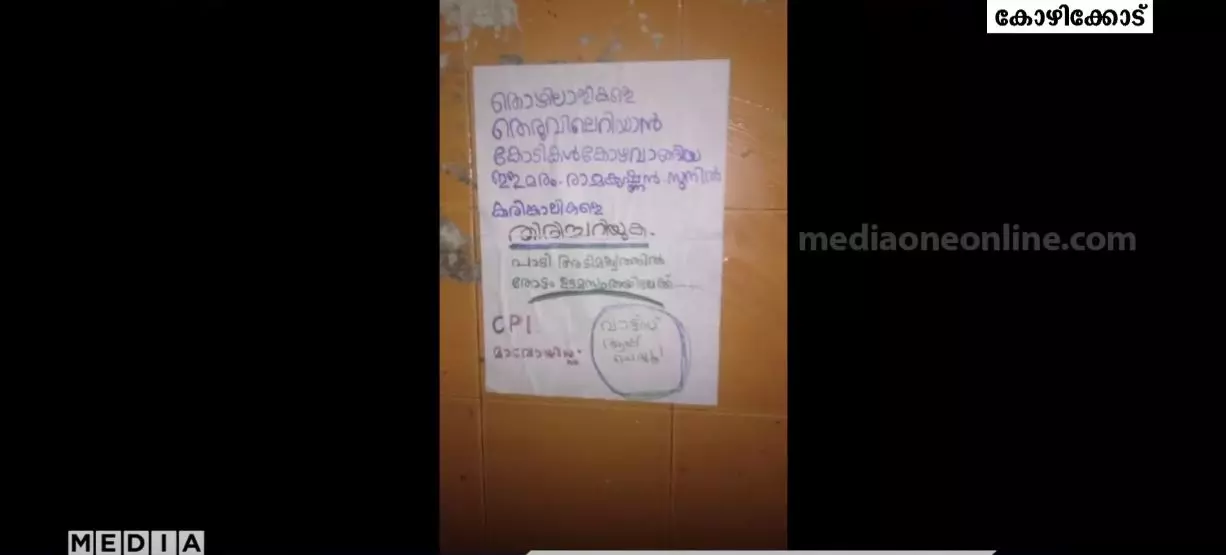 കോഴിക്കോട്
തൊഴിലാളികളെ
തെരുവിലെറിയാൻ
കോടികൾ കോഴവാങ്ങിയ
എളമരം. രാമകൃഷ്ണൻ. സുനിൽ
കരിങ്കാലികളെ
തിരിച്ചറിയുക.
പാടി അടിമത്വത്തിൽ
തോട്ടം ഉടമസ്ഥതയിലേക്ക്......
CPI
മാവോയിസ്റ്റ്
mediaoneonline.com
MEDIA